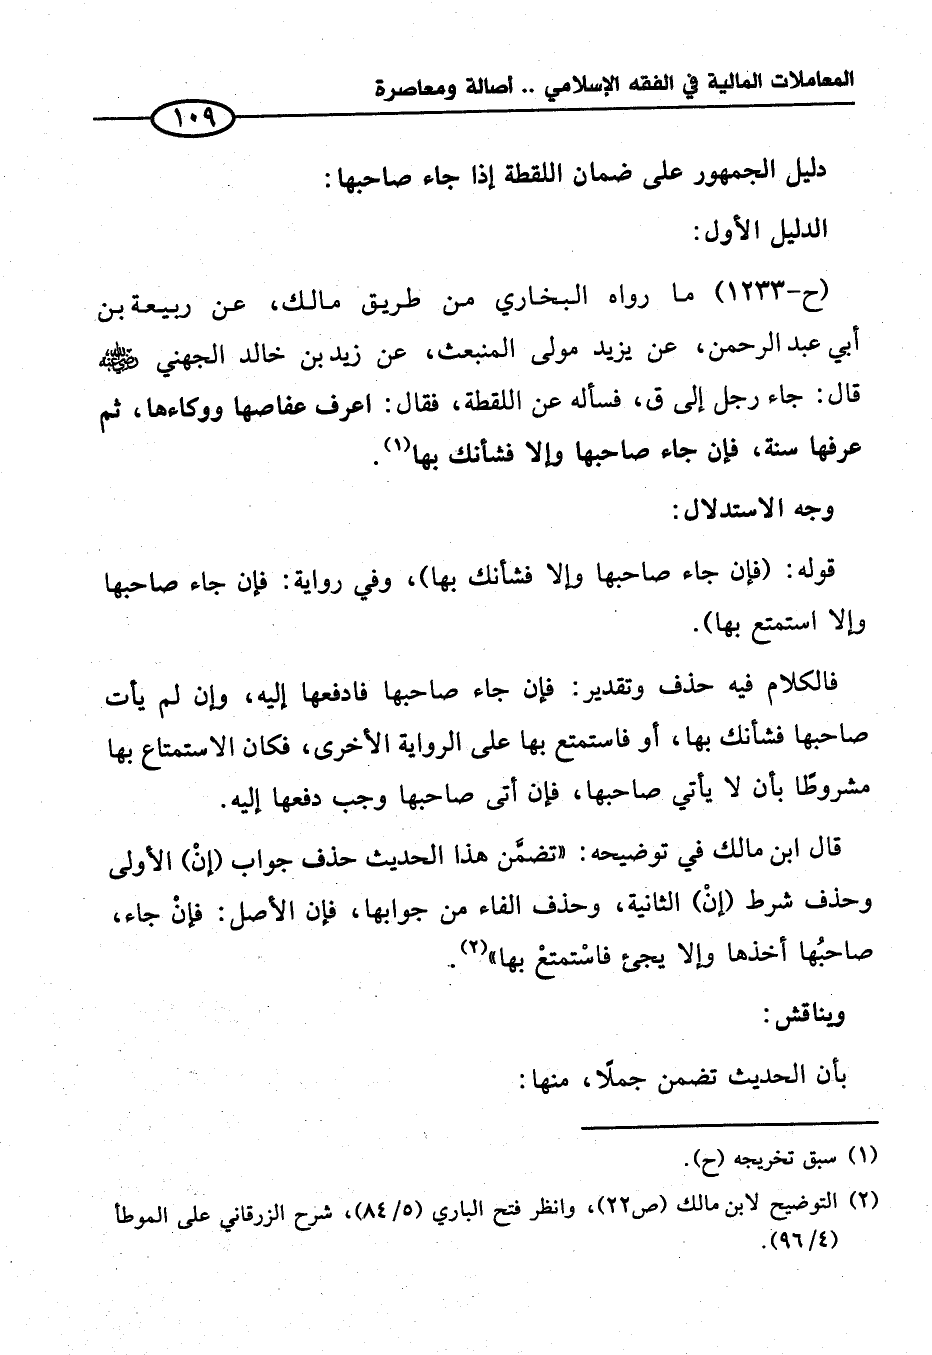 المعاملات المالية في الفقه الإسلامي .. أصالة ومعاصرة
١٠٩
دليل الجمهور على ضمان اللقطة إذا جاء صاحبها:
الدليل الأول:
(ح-١٢٣٣) ما رواه البخاري من طريق مالك، عن ربيعة بن
أبي عبد الرحمن، عن يزيد مولى المنبعث، عن زيد بن خالد الجهني رضي الله عنه
قال: جاء رجل إلى ق، فسأله عن اللقطة، فقال: اعرف عفاصها ووكاءها، ثم
عرفها سنة، فإن جاء صاحبها وإلا فشأنك بها(١).
وجه الاستدلال:
قوله: (فإن جاء صاحبها وإلا فشأنك بها)، وفي رواية: فإن جاء صاحبها
وإلا استمتع بها).
فالكلام فيه حذف وتقدير: فإن جاء صاحبها فادفعها إليه، وإن لم يأت
صاحبها فشأنك بها، أو فاستمتع بها على الرواية الأخرى، فكان الاستمتاع بها
مشروطًا بأن لا يأتي صاحبها، فإن أتى صاحبها وجب دفعها إليه.
قال ابن مالك في توضيحه: «تضمَّن هذا الحديث حذف جواب (إنْ) الأولى
وحذف شرط (إنْ) الثانية، وحذف الفاء من جوابها، فإن الأصل: فإنْ جاء،
صاحبُها أخذها وإلا يجئ فاسْتمتعْ بها»(٢).
ويناقش:
بأن الحديث تضمن جملًا، منها:
(١) سبق تخريجه (ح).
(٢) التوضيح لابن مالك (ص٢٢)، وانظر فتح الباري (٨٤/٥)، شرح الزرقاني على الموطأ
(٩٦/٤).